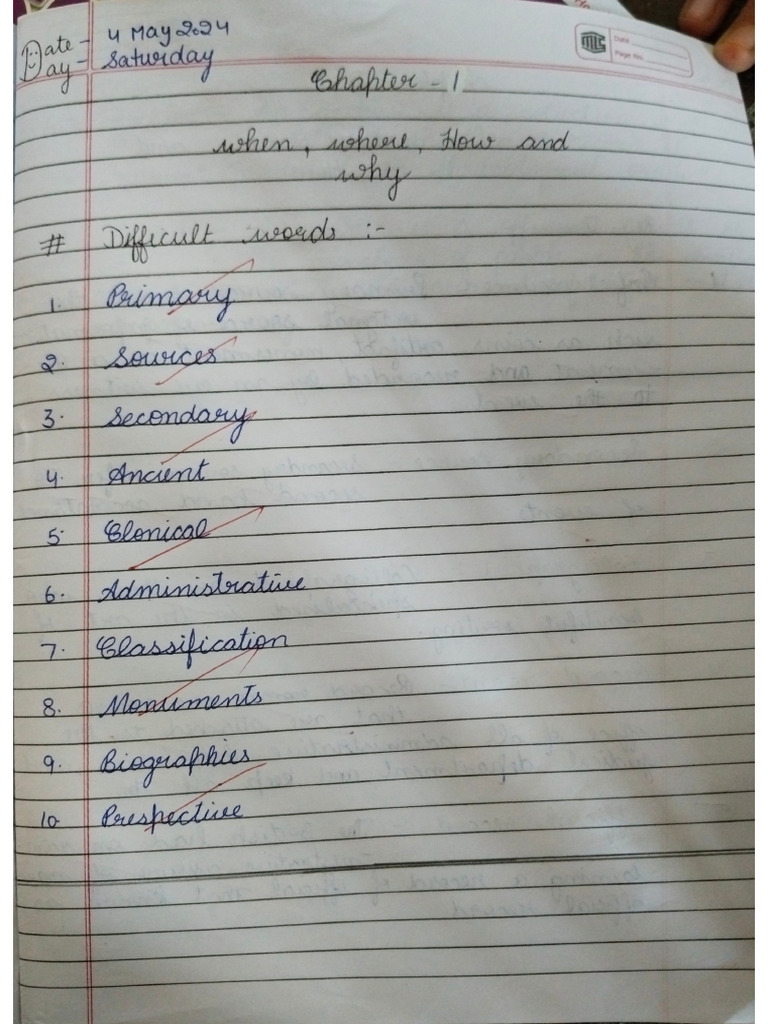 Date - 4 May 2024
Day - Saturday
MLS
Date
Page No.
Chapter - 1
when, where, How and
why
# Difficult words :-
1. Primary
2. Sources
3. Secondary
4. Ancient
5. Clonical
6. Administrative
7. Classification
8. Monuments
9. Biographies
10 Prespective